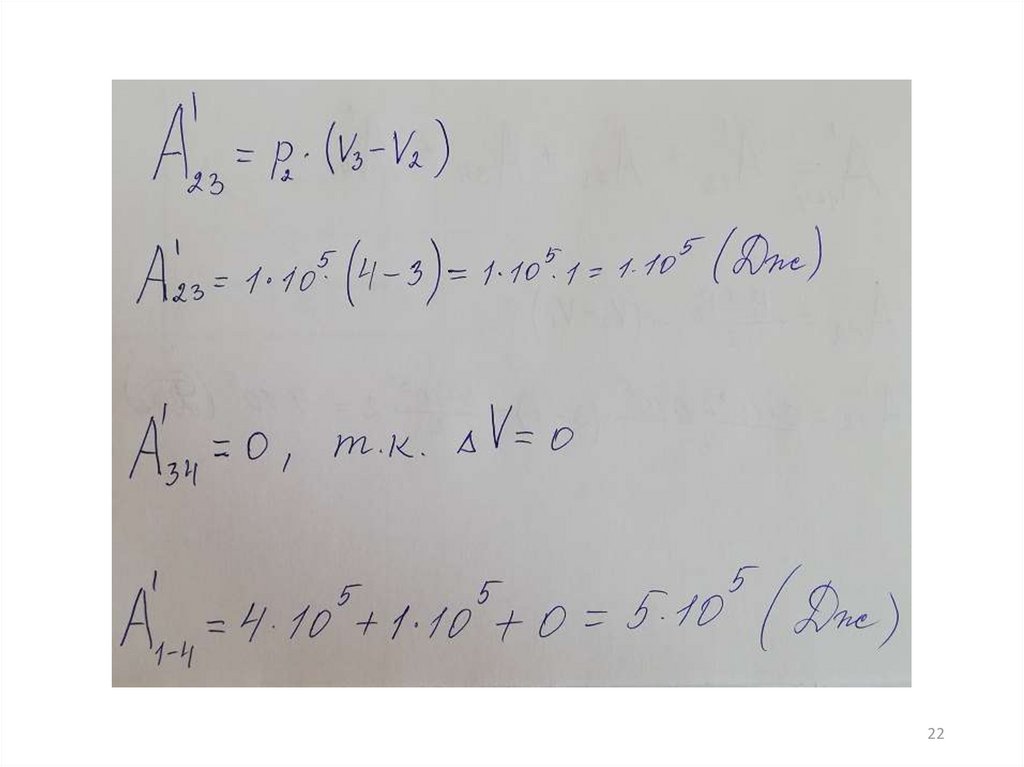 A'₂₃ = p₂ · (V₃ – V₂)
A'₂₃ = 1·10⁵·(4 – 3) = 1·10⁵·1 = 1·10⁵ (Дж)
A'₃₄ = 0, т.к. ΔV = 0
A'₁₋₄ = 4·10⁵ + 1·10⁵ + 0 = 5·10⁵ (Дж)
22